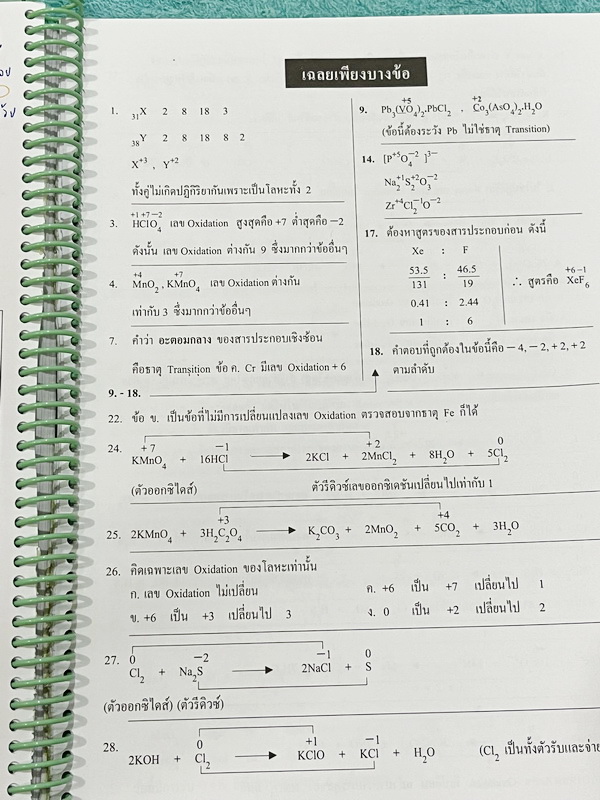 เฉลยเพียงบางข้อ
1. ₃₁X 2 8 18 3
₃₈Y 2 8 18 8 2
X⁺³ , Y⁺²
ทั้งคู่ไม่เกิดปฏิกิริยากันเพราะเป็นโลหะทั้ง 2
+1 +7 −2
3. HClO₄ เลข Oxidation สูงสุดคือ +7 ต่ำสุดคือ −2
ดังนั้น เลข Oxidation ต่างกัน 9 ซึ่งมากกว่าข้ออื่นๆ
+4 +7
4. MnO₂ , KMnO₄ เลข Oxidation ต่างกัน
เท่ากับ 3 ซึ่งมากกว่าข้ออื่นๆ
7. คำว่า อะตอมกลาง ของสารประกอบเชิงซ้อน
คือธาตุ Transition ข้อ ค. Cr มีเลข Oxidation + 6
9. - 18.
+5 +2
9. Pb₃(VO₄)₂.PbCl₂ , Co₃(AsO₄)₂.H₂O
(ข้อนี้ต้องระวัง Pb ไม่ใช่ธาตุ Transition)
14. [P⁺⁵O₄⁻² ]³⁻
Na₂⁺¹S₂⁺²O₃⁻²
Zr⁺⁴Cl₂⁻¹O⁻²
17. ต้องหาสูตรของสารประกอบก่อน ดังนี้
Xe : F
53.5/131 : 46.5/19
+6 −1
∴ สูตรคือ XeF₆
0.41 : 2.44
1 : 6
18. คำตอบที่ถูกต้องในข้อนี้คือ − 4, − 2, + 2, + 2
ตามลำดับ
22. ข้อ ข. เป็นข้อที่ไม่มีการเปลี่ยนแปลงเลข Oxidation ตรวจสอบจากธาตุ Fe ก็ได้
+ 7 −1 + 2 0
24. KMnO₄ + 16HCl → 2KCl + 2MnCl₂ + 8H₂O + 5Cl₂
(ตัวออกซิไดส์) ตัวรีดิวซ์เลขออกซิเดชันเปลี่ยนไปเท่ากับ 1
+3 +4
25. 2KMnO₄ + 3H₂C₂O₄ → K₂CO₃ + 2MnO₂ + 5CO₂ + 3H₂O
26. คิดเฉพาะเลข Oxidation ของโลหะเท่านั้น
ก. เลข Oxidation ไม่เปลี่ยน ค. +6 เป็น +7 เปลี่ยนไป 1
ข. +6 เป็น +3 เปลี่ยนไป 3 ง. 0 เป็น +2 เปลี่ยนไป 2
0 −2 −1 0
27. Cl₂ + Na₂S → 2NaCl + S
(ตัวออกซิไดส์) (ตัวรีดิวซ์)
0 +1 −1
28. 2KOH + Cl₂ → KClO + KCl + H₂O (Cl₂ เป็นทั้งตัวรับและจ่าย